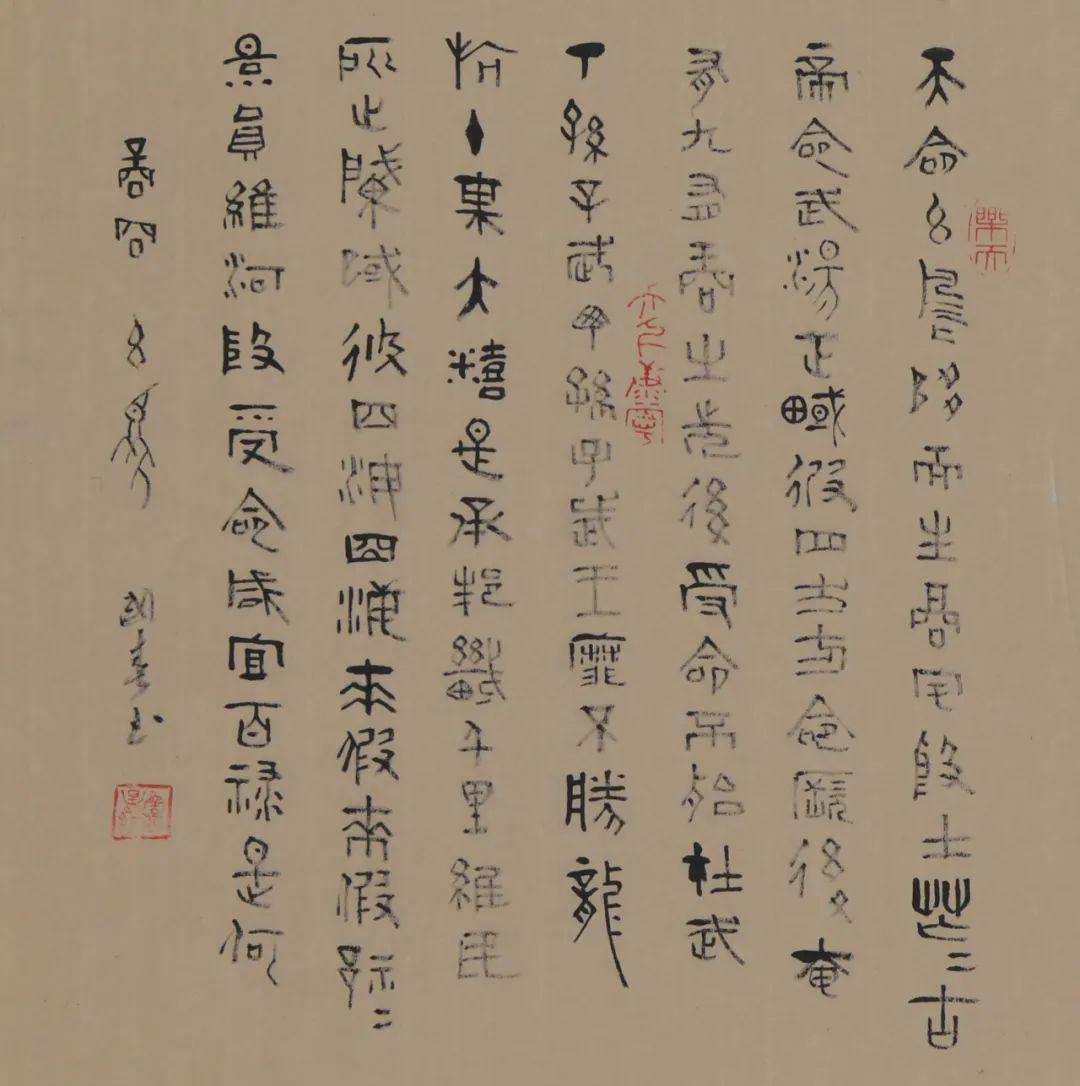 天命玄鳥降而生商宅殷土芒〻古
帝命武湯正域彼四方方命厥後奄
有九有商之先後受命不殆在武
丁孫子武丁孫子武王靡不勝龍
旂十乘大糦是承邦畿千里維民
所止肇域彼四海四海來假來假祁〻
景員維河殷受命咸宜百祿是何
商頌 玄鳥